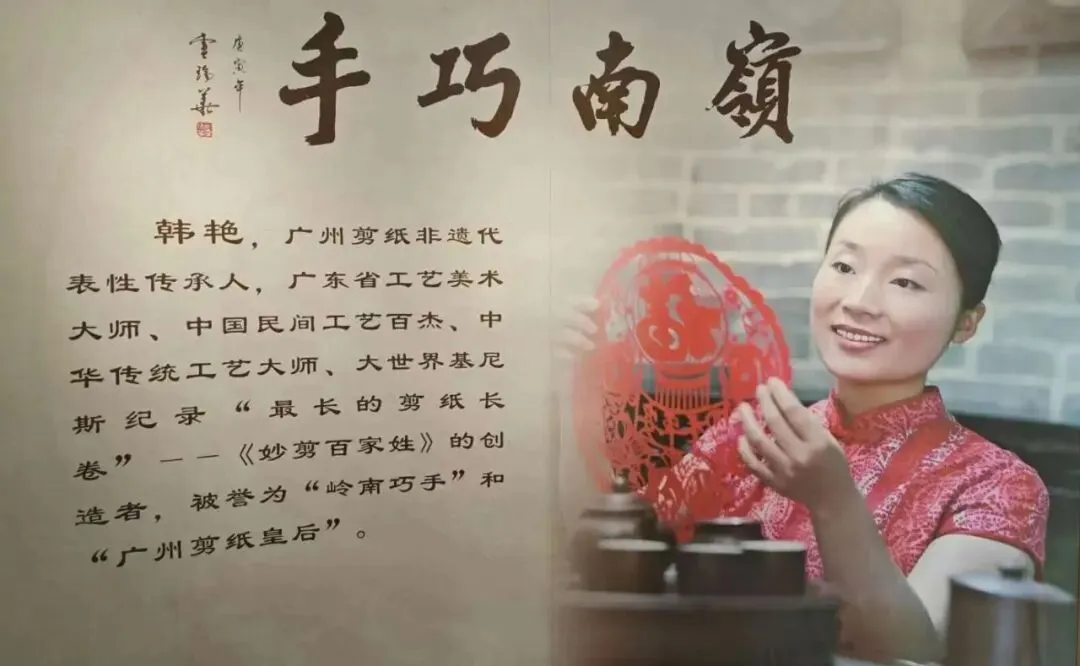 嶺南巧手
庚寅年
韩艳，广州剪纸非遗代
表性传承人，广东省工艺美术
大师、中国民间工艺百杰、中
华传统工艺大师、大世界基尼
斯纪录“最长的剪纸长
卷”——《妙剪百家姓》的创
造者，被誉为“岭南巧手”和
“广州剪纸皇后”。